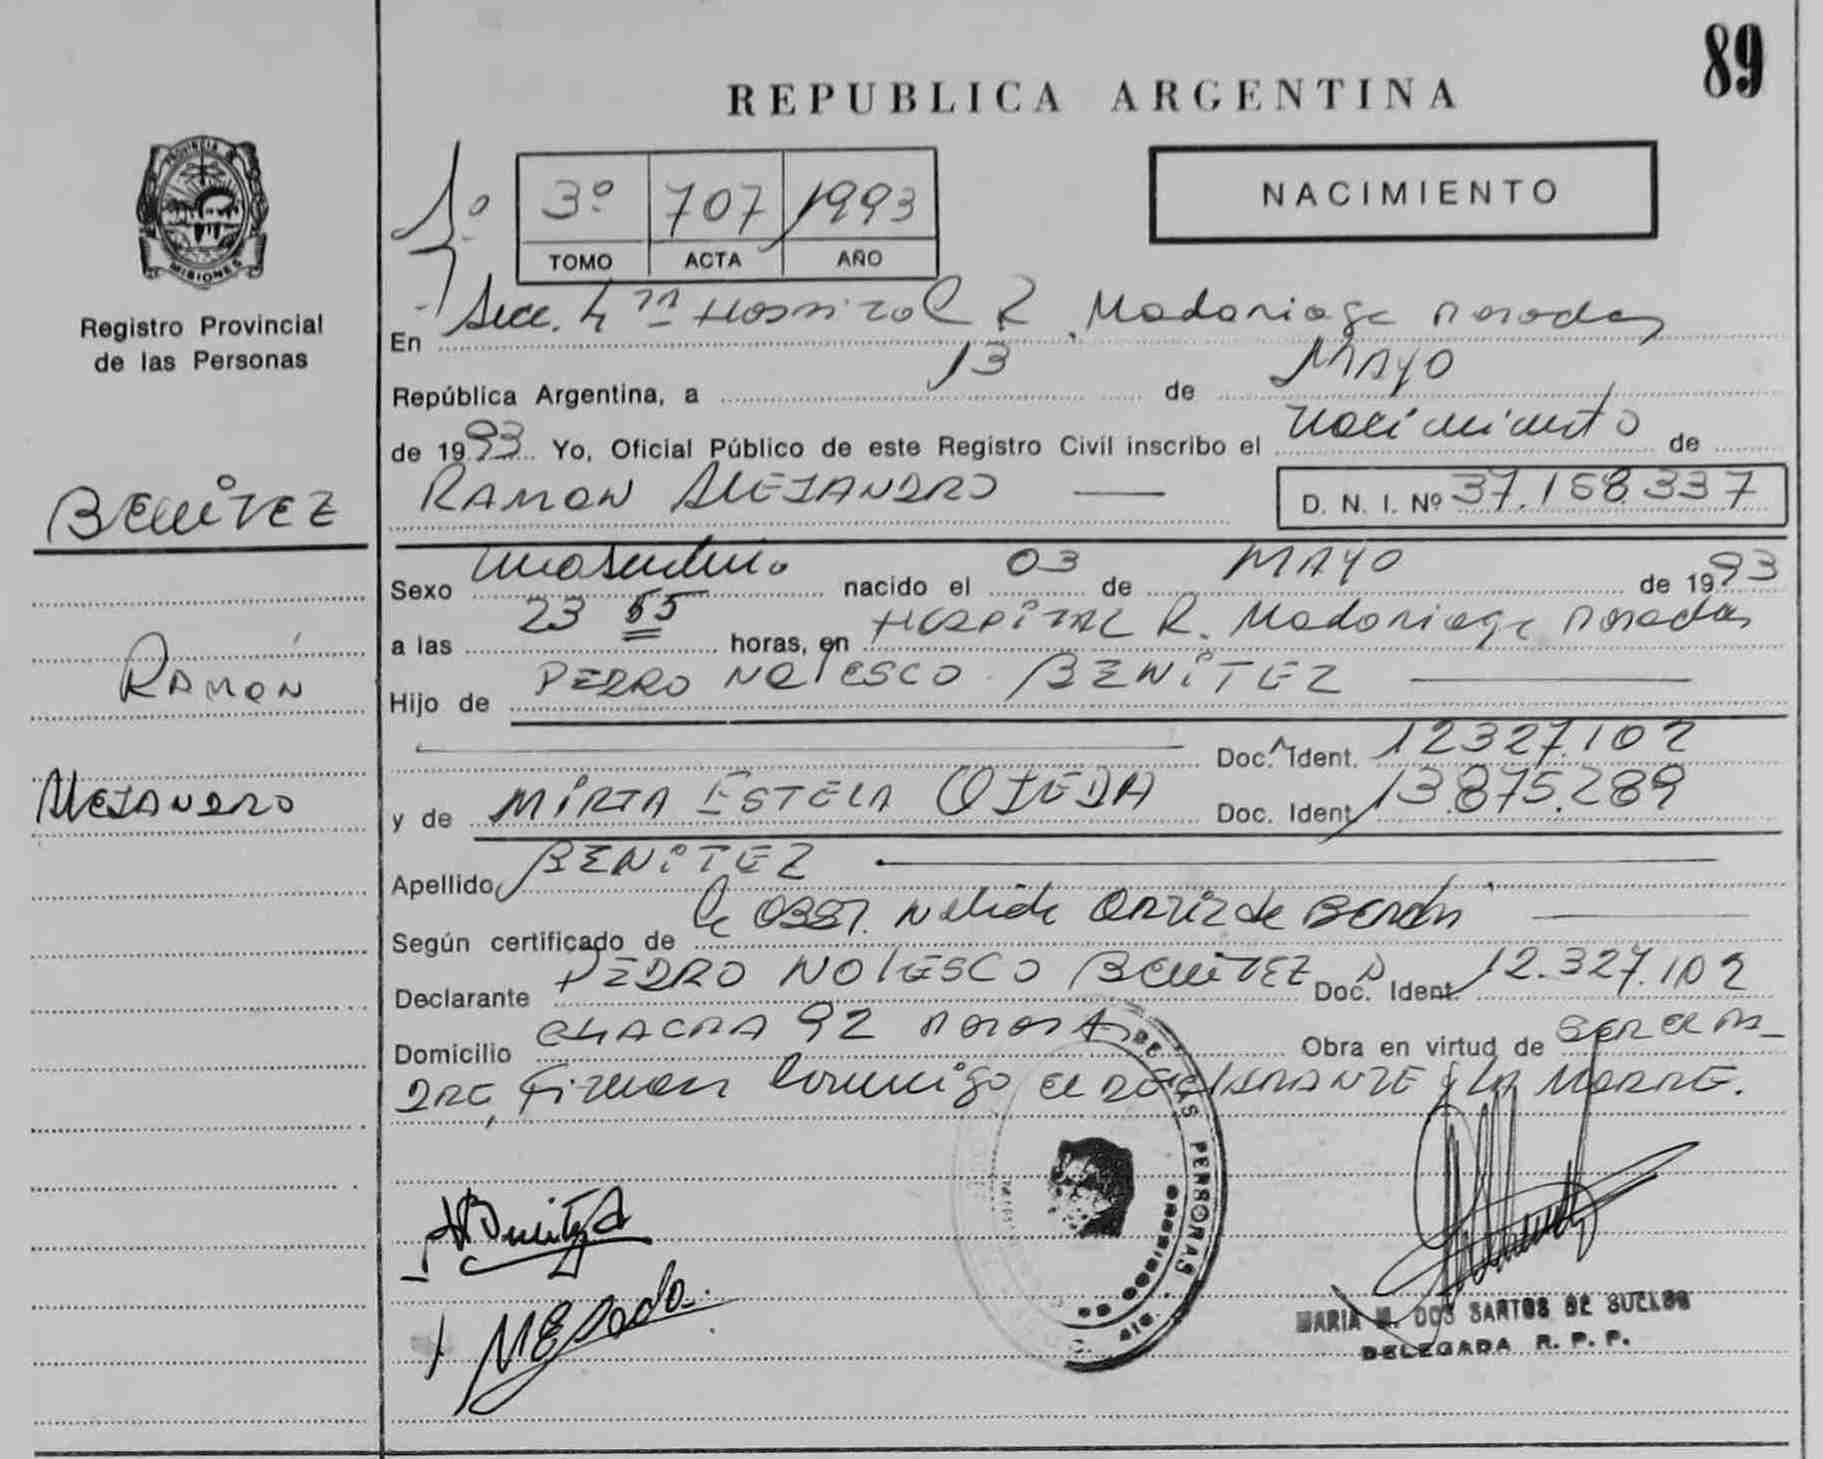 89
REPUBLICA ARGENTINA
1º 3º 707 1993
TOMO ACTA AÑO
NACIMIENTO
PROVINCIA DE
MISIONES
Registro Provincial
de las Personas
En Secc. 4 Hospital R. Madariaga Posadas
República Argentina, a 13 de MAYO
de 1993 Yo, Oficial Público de este Registro Civil inscribo el nacimiento de
BENITEZ
RAMON ALEJANDRO — D. N. I. Nº 37.158.337
Sexo masculino nacido el 03 de MAYO de 1993
a las 23 55 horas, en HOSPITAL R. Madariaga Posadas
RAMON
Hijo de PEDRO NOLESCO BENITEZ
Doc. Ident. 12327.102
ALEJANDRO
y de MIRTA ESTELA OJEDA Doc. Ident. 13.875.289
Apellido BENITEZ
Según certificado de Nelida Ortiz de
Declarante PEDRO NOLESCO BENITEZ Doc. Ident. 12.327.102
Domicilio CHACRA 92 Obra en virtud de SER EL PA-
DRE, Firman conmigo el DECLARANTE y LA MADRE.
DE LAS PERSONAS
MARIA M. DOS SANTOS DE SUELDO
DELEGADA R. P. P.